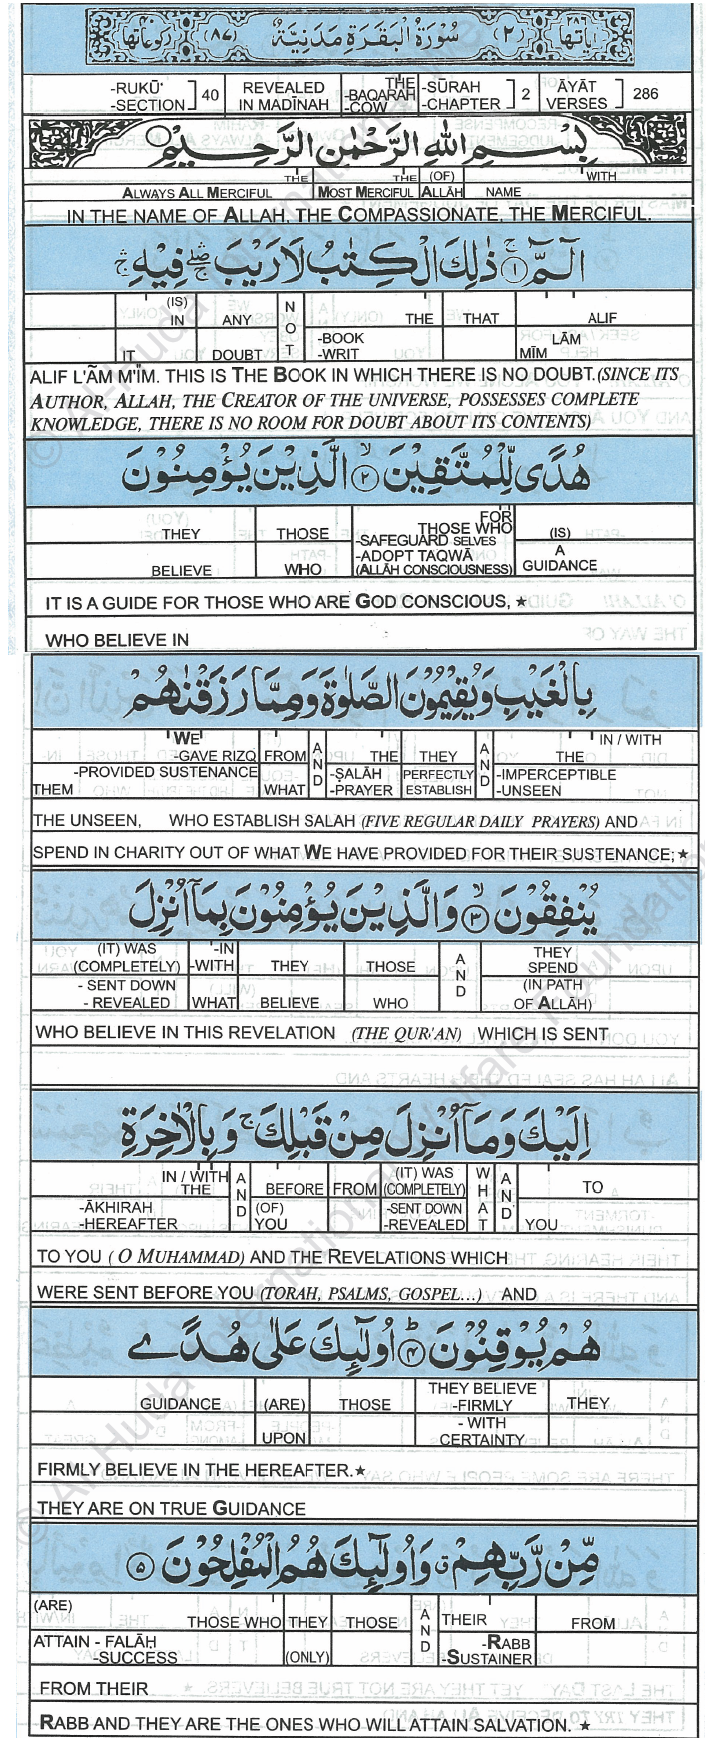 اٰیاتها ۲۸۶ (۲) سُوْرَةُ الْبَقَرَةِ مَدَنِیَّةٌ (۸۷) رکوعاتها ۴۰
-RUKŪ' -SECTION ] 40 REVEALED IN MADĪNAH THE -BAQARAH -COW -SŪRAH -CHAPTER ] 2 ĀYĀT VERSES ] 286
بِسْمِ اللهِ الرَّحْمٰنِ الرَّحِیْمِ
THE ALWAYS ALL MERCIFUL THE MOST MERCIFUL (OF) ALLĀH NAME WITH
IN THE NAME OF ALLAH, THE COMPASSIONATE, THE MERCIFUL.
الٓمّٓ ۚ‏ ۱ ذٰلِكَ الْكِتٰبُ لَا رَیْبَ ۛۖ فِیْهِ ۛۚ
(IS) IN ANY N O T THE THAT ALIF
IT DOUBT -BOOK -WRIT LĀM MĪM
ALIF L'ĀM M'IM. THIS IS THE BOOK IN WHICH THERE IS NO DOUBT.(SINCE ITS
AUTHOR, ALLAH, THE CREATOR OF THE UNIVERSE, POSSESSES COMPLETE
KNOWLEDGE, THERE IS NO ROOM FOR DOUBT ABOUT ITS CONTENTS)
هُدًی لِّلْمُتَّقِیْنَ ۙ‏ ۲ الَّذِیْنَ یُؤْمِنُوْنَ
THEY THOSE FOR THOSE WHO (IS) A
BELIEVE WHO -SAFEGUARD SELVES -ADOPT TAQWĀ (ALLĀH CONSCIOUSNESS) GUIDANCE
IT IS A GUIDE FOR THOSE WHO ARE GOD CONSCIOUS, ★
WHO BELIEVE IN
بِالْغَیْبِ وَیُقِیْمُوْنَ الصَّلٰوةَ وَمِمَّا رَزَقْنٰهُمْ
WE -GAVE RIZQ FROM A N D THE THEY A N D IN / WITH THE
THEM -PROVIDED SUSTENANCE WHAT -ṢALĀH -PRAYER PERFECTLY ESTABLISH -IMPERCEPTIBLE -UNSEEN
THE UNSEEN, WHO ESTABLISH SALAH (FIVE REGULAR DAILY PRAYERS) AND
SPEND IN CHARITY OUT OF WHAT WE HAVE PROVIDED FOR THEIR SUSTENANCE; ★
یُنْفِقُوْنَ ۙ‏ ۳ وَالَّذِیْنَ یُؤْمِنُوْنَ بِمَآ اُنْزِلَ
(IT) WAS (COMPLETELY) -IN -WITH THEY THOSE A N D THEY SPEND
- SENT DOWN - REVEALED WHAT BELIEVE WHO (IN PATH OF ALLĀH)
WHO BELIEVE IN THIS REVELATION (THE QUR'AN) WHICH IS SENT
اِلَیْكَ وَمَآ اُنْزِلَ مِنْ قَبْلِكَ ۚ وَبِالْاٰخِرَةِ
IN / WITH THE A N D BEFORE FROM (IT) WAS (COMPLETELY) W H A T A N D TO
-ĀKHIRAH -HEREAFTER (OF) YOU -SENT DOWN -REVEALED YOU
TO YOU ( O MUHAMMAD) AND THE REVELATIONS WHICH
WERE SENT BEFORE YOU (TORAH, PSALMS, GOSPEL...) AND
هُمْ یُوْقِنُوْنَ ؕ‏ ۴ اُولٰٓئِكَ عَلٰی هُدًی
GUIDANCE (ARE) THOSE THEY BELIEVE -FIRMLY THEY
UPON - WITH CERTAINTY
FIRMLY BELIEVE IN THE HEREAFTER.★
THEY ARE ON TRUE GUIDANCE
مِّنْ رَّبِّهِمْ ۗ وَاُولٰٓئِكَ هُمُ الْمُفْلِحُوْنَ ۵
(ARE) THOSE WHO THEY THOSE A N D THEIR FROM
ATTAIN - FALĀḤ -SUCCESS (ONLY) -RABB -SUSTAINER
FROM THEIR
RABB AND THEY ARE THE ONES WHO WILL ATTAIN SALVATION. ★